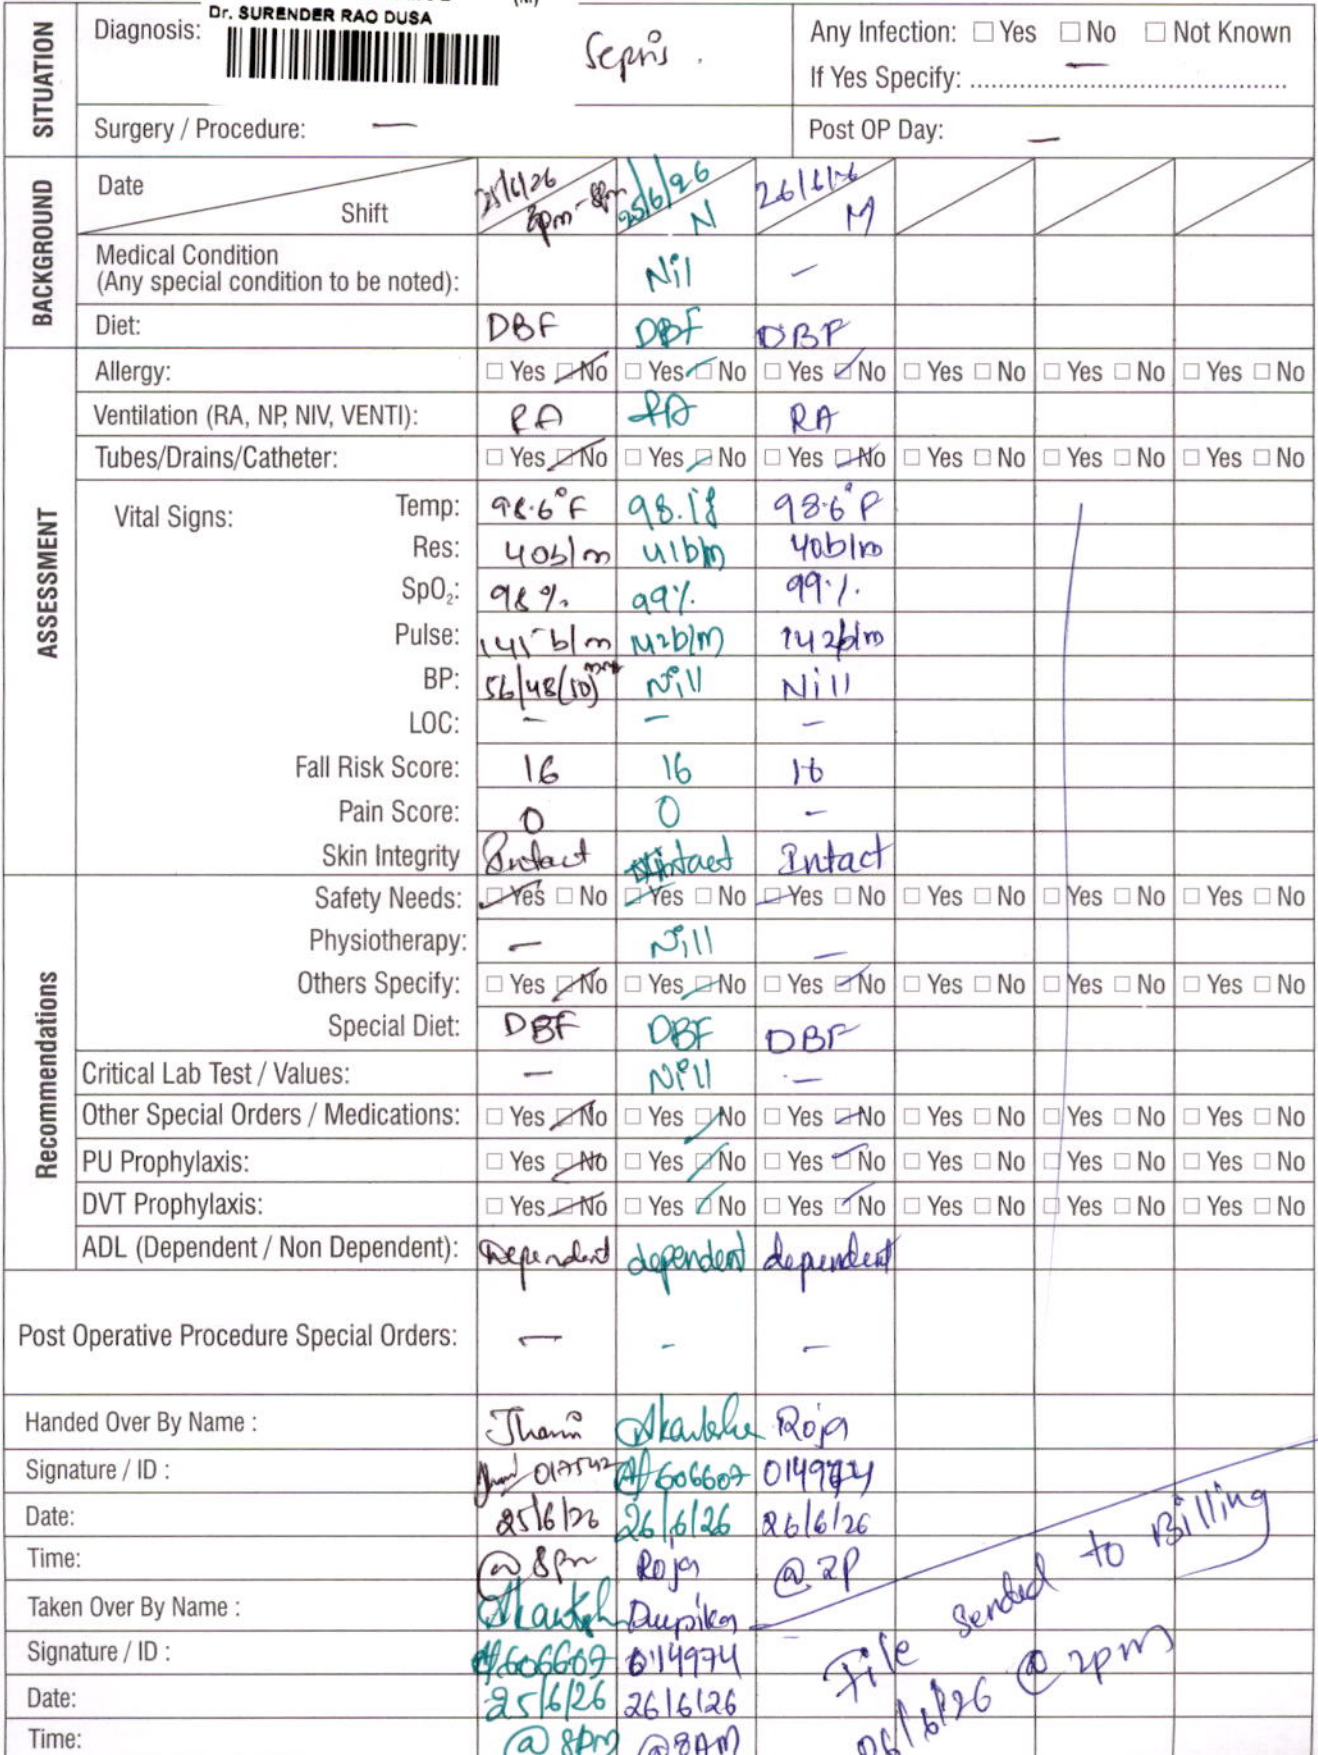 Dr. SURENDER RAO DUSA
SITUATION
Diagnosis: Sepsis.
Any Infection: □ Yes □ No □ Not Known
If Yes Specify: ........................................................
Surgery / Procedure: —
Post OP Day: —
BACKGROUND
Date 25/6/26 25/6/26 26/6/26
Shift 2pm-8pm N M
Medical Condition
(Any special condition to be noted): Nil –
Diet: DBF DBF DBF
ASSESSMENT
Allergy: □ Yes ☑ No □ Yes ☑ No □ Yes ☑ No □ Yes □ No □ Yes □ No □ Yes □ No
Ventilation (RA, NP, NIV, VENTI): RA RA RA
Tubes/Drains/Catheter: □ Yes ☑ No □ Yes ☑ No □ Yes ☑ No □ Yes □ No □ Yes □ No □ Yes □ No
Vital Signs: Temp: 98.6°F 98.1f 98.6°F
Res: 40b/m 41b/m 40b/m
SpO₂: 98% 99% 99%
Pulse: 141 b/m 142b/m 142b/m
BP: 56/48(50) Nill Nill
LOC: – – –
Fall Risk Score: 16 16 16
Pain Score: 0 0 –
Skin Integrity Intact intact Intact
Recommendations
Safety Needs: ☑ Yes □ No ☑ Yes □ No ☑ Yes □ No □ Yes □ No □ Yes □ No □ Yes □ No
Physiotherapy: – Nill –
Others Specify: □ Yes ☑ No □ Yes ☑ No □ Yes ☑ No □ Yes □ No □ Yes □ No □ Yes □ No
Special Diet: DBF DBF DBF
Critical Lab Test / Values: – Nill –
Other Special Orders / Medications: □ Yes ☑ No □ Yes ☑ No □ Yes ☑ No □ Yes □ No □ Yes □ No □ Yes □ No
PU Prophylaxis: □ Yes ☑ No □ Yes ☑ No □ Yes ☑ No □ Yes □ No □ Yes □ No □ Yes □ No
DVT Prophylaxis: □ Yes ☑ No □ Yes ☑ No □ Yes ☑ No □ Yes □ No □ Yes □ No □ Yes □ No
ADL (Dependent / Non Dependent): Dependent dependent dependent
Post Operative Procedure Special Orders: – – –
Handed Over By Name : Roja
Signature / ID : 017542 606607 014974
Date: 25/6/26 26/6/26 26/6/26
Time: @ 8pm Roja @ 2P
Taken Over By Name : Deepika
Signature / ID : 606607 014974
Date: 25/6/26 26/6/26
Time: @ 8pm @ 8AM
File sended to Billing
26/6/26 @ 2pm